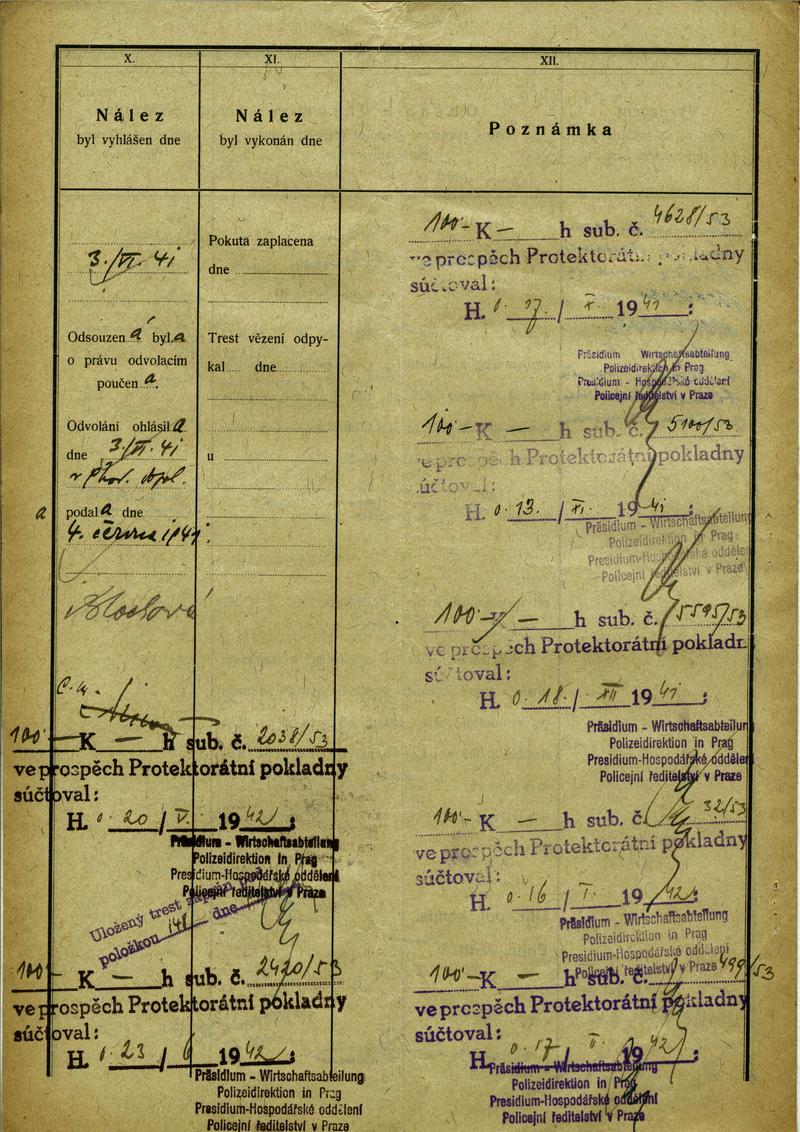 X.
Nález
byl vyhlášen dne
3./VI. 41
Odsouzen á byl a
o právu odvolacím
poučen a.
Odvolání ohlásil a
dne 3/VI. 41
a podal a dne
4. června 1941.
XI.
Nález
byl vykonán dne
Pokuta zaplacena
dne
Trest vězení odpy-
kal dne
u
XII.
Poznámka
100·- K — h sub. č. 4628/53
ve prospěch Protektorátní pokladny
súčtoval:
H. 0. 17 / X. 1941 :
Präsidium Wirtschaftsabteilung
Polizeidirektion in Prag
Presidium - Hospodářské oddělení
Policejní ředitelství v Praze
100·- K — h sub. č. 5100/53
ve prospěch Protektorátní pokladny
súčtoval:
H. 0. 13. / XI. 1941 :
Präsidium - Wirtschaftsabteilung
Polizeidirektion in Prag
Presidium-Hospodářské oddělení
Policejní ředitelství v Praze
100·- K — h sub. č. 5595/53
ve prospěch Protektorátní pokladn
súčtoval:
H. 0. 18. / XII 1941 :
Präsidium - Wirtschaftsabteilun
Polizeidirektion in Prag
Presidium-Hospodářské oddělen
Policejní ředitelství v Praze
100·- K — h sub. č. 32/53
ve prospěch Protektorátní pokladny
súčtoval:
H. 0. 16 / I. 1942 :
Präsidium - Wirtschaftsabteilung
Polizeidirektion in Prag
Presidium-Hospodářské oddělení
Policejní ředitelství v Praze
100·- K — h sub. č. 499/53
ve prospěch Protektorátní pokladny
súčtoval:
H. 0. 17 / II. 1942 :
Präsidium - Wirtschaftsabteilung
Polizeidirektion in Prag
Presidium-Hospodářské oddělení
Policejní ředitelství v Praze
100·- K — h sub. č. 2038/53
ve prospěch Protektorátní pokladny
súčtoval:
H. 0. 20 / V. 1942 :
Präsidium - Wirtschaftsabteilung
Polizeidirektion in Prag
Presidium-Hospodářské oddělení
Policejní ředitelství v Praze
Uložený trest
položkou dne
100·- K — h sub. č. 2470/53
ve prospěch Protektorátní pokladny
súčtoval:
H. 0. 23 / 6 1942 :
Präsidium - Wirtschaftsabteilung
Polizeidirektion in Prag
Presidium-Hospodářské oddělení
Policejní ředitelství v Praze